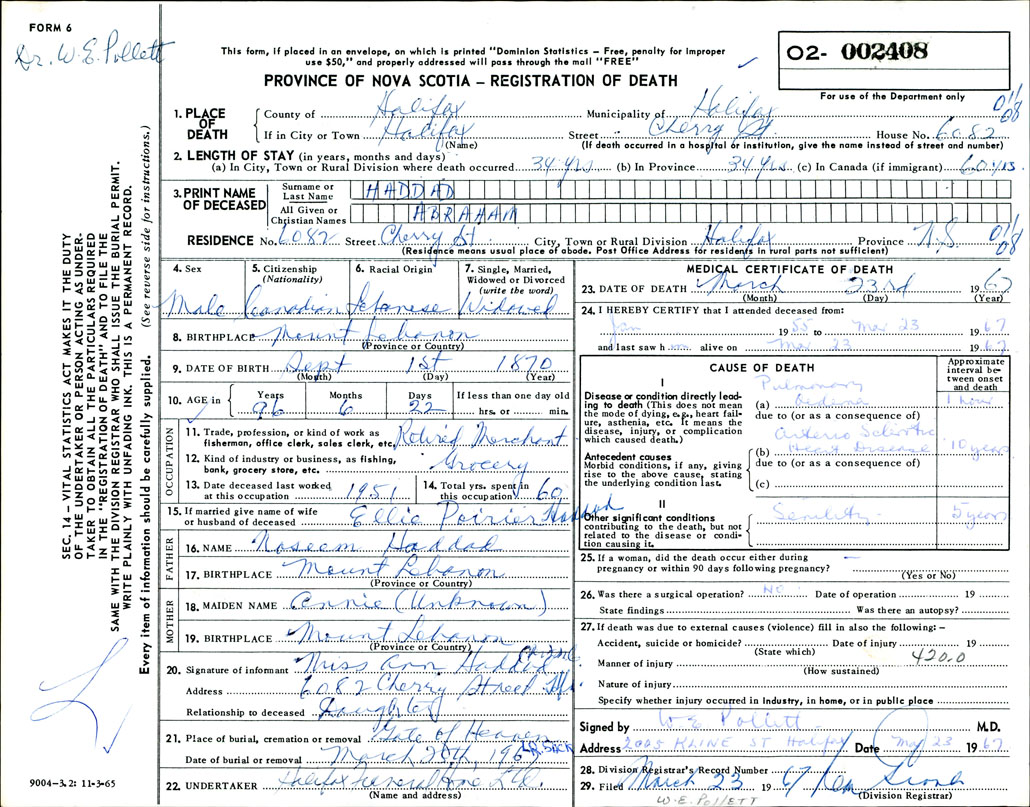 FORM 6
Dr. W. E. Pollett
This form, if placed in an envelope, on which is printed "Dominion Statistics – Free, penalty for improper
use $50," and properly addressed will pass through the mail "FREE"
PROVINCE OF NOVA SCOTIA – REGISTRATION OF DEATH
02- 002408
For use of the Department only
1. PLACE OF DEATH
County of Halifax Municipality of Halifax
If in City or Town Halifax Street Cherry St. House No. 6082
(Name) (If death occurred in a hospital or institution, give the name instead of street and number)
2. LENGTH OF STAY (in years, months and days)
(a) In City, Town or Rural Division where death occurred 34 yrs (b) In Province 34 yrs (c) In Canada (if immigrant) 60 yrs
3. PRINT NAME OF DECEASED
Surname or Last Name HADDAD
All Given or Christian Names ABRAHAM
RESIDENCE No. 6082 Street Cherry St City, Town or Rural Division Halifax Province N.S.
(Residence means usual place of abode. Post Office Address for residents in rural parts not sufficient)
4. Sex
Male
5. Citizenship (Nationality)
Canadian
6. Racial Origin
Lebanese
7. Single, Married, Widowed or Divorced (write the word)
Widowed
8. BIRTHPLACE Mount Lebanon
(Province or Country)
9. DATE OF BIRTH Sept 1st 1870
(Month) (Day) (Year)
10. AGE in
Years 96
Months 6
Days 22
If less than one day old
hrs. or min.
OCCUPATION
11. Trade, profession, or kind of work as fisherman, office clerk, sales clerk, etc. Retired Merchant
12. Kind of industry or business, as fishing, bank, grocery store, etc. Grocery
13. Date deceased last worked at this occupation 1951
14. Total yrs. spent in this occupation 60
15. If married give name of wife or husband of deceased Ellie Poirier Haddad
FATHER
16. NAME Naseem Haddad
17. BIRTHPLACE Mount Lebanon
(Province or Country)
MOTHER
18. MAIDEN NAME Annie (Unknown)
19. BIRTHPLACE Mount Lebanon
(Province or Country)
20. Signature of informant Miss Ann Haddad
Address 6082 Cherry Street Hfx.
Relationship to deceased Daughter
21. Place of burial, cremation or removal Gate of Heaven
Date of burial or removal March 1967
22. UNDERTAKER Halifax Funeral Home Ltd.
(Name and address)
MEDICAL CERTIFICATE OF DEATH
23. DATE OF DEATH March 23rd 1967
(Month) (Day) (Year)
24. I HEREBY CERTIFY that I attended deceased from:
Jan 1955 to Mar 23 1967
and last saw h alive on Mar 23 1967
CAUSE OF DEATH
Approximate interval between onset and death
I
Disease or condition directly leading to death (This does not mean the mode of dying, e.g., heart failure, asthenia, etc. It means the disease, injury, or complication which caused death.)
(a) Pulmonary Oedema 1 hour
due to (or as a consequence of)
Antecedent causes
Morbid conditions, if any, giving rise to the above cause, stating the underlying condition last.
(b) Arterio Sclerotic Heart Disease 10 years
due to (or as a consequence of)
(c)
II
Other significant conditions contributing to the death, but not related to the disease or condition causing it.
Senility 5 years
25. If a woman, did the death occur either during pregnancy or within 90 days following pregnancy? —
(Yes or No)
26. Was there a surgical operation? No Date of operation 19
State findings Was there an autopsy?
27. If death was due to external causes (violence) fill in also the following: –
Accident, suicide or homicide? Date of injury 19
(State which)
420.0
Manner of injury
(How sustained)
Nature of injury
Specify whether injury occurred in Industry, in home, or in public place
Signed by W. E. Pollett M.D.
Address 2005 KLINE ST Halifax Date Mar 23 1967
28. Division Registrar's Record Number
29. Filed March 23 1967
(Division Registrar)
W. E. POLLETT
SEC. 14 – VITAL STATISTICS ACT MAKES IT THE DUTY
OF THE UNDERTAKER OR PERSON ACTING AS UNDER-
TAKER TO OBTAIN ALL THE PARTICULARS REQUIRED
IN THE "REGISTRATION OF DEATH" AND TO FILE THE
SAME WITH THE DIVISION REGISTRAR WHO SHALL ISSUE THE BURIAL PERMIT.
WRITE PLAINLY WITH UNFADING INK. THIS IS A PERMANENT RECORD.
Every item of information should be carefully supplied. (See reverse side for instructions.)
9004–3.2: 11-3-65